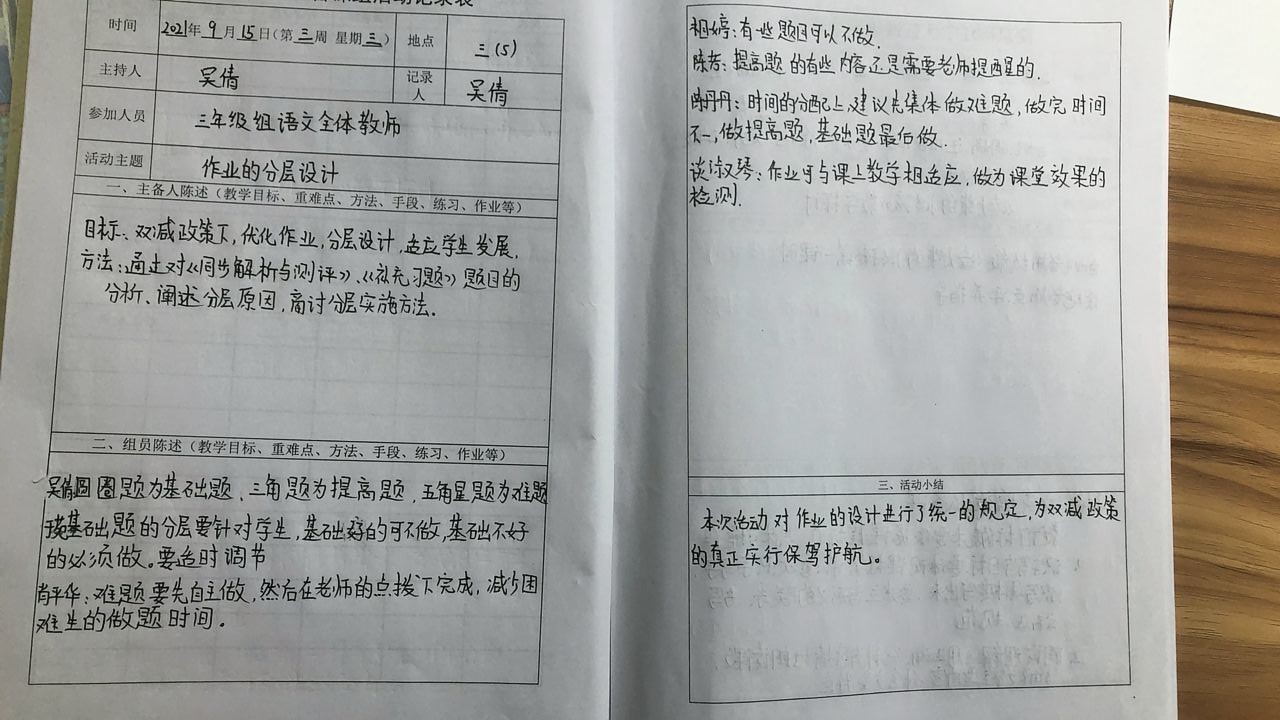 活动记录表
时间 2021年9月15日(第三周 星期三) 地点 三(5)
主持人 吴倩 记录人 吴倩
参加人员 三年级组语文全体教师
活动主题 作业的分层设计
一、主备人陈述(教学目标、重难点、方法、手段、练习、作业等)
目标:双减政策下,优化作业,分层设计,适应学生发展.
方法:通过对《同步解析与测评》、《补充习题》题目的
分析、阐述分层原因,商讨分层实施方法.
二、组员陈述(教学目标、重难点、方法、手段、练习、作业等)
吴倩:圆圈题为基础题、三角题为提高题,五角星题为难题
基础题的分层要针对学生,基础好的可不做,基础不好
的必须做。要适时调节
肖平华:难题要先自主做,然后在老师的点拨下完成,减少困
难生的做题时间.
相婷:有些题目可以不做.
陈芳:提高题的有些内容还是需要老师提醒的.
陈丹丹:时间的分配上,建议先集体做难题,做完时间
不一,做提高题,基础题最后做.
谈淑琴:作业可与课上教学相适应,做为课堂效果的
检测.
三、活动小结
本次活动对作业的设计进行了统一的规定,为双减政策
的真正实行保驾护航。